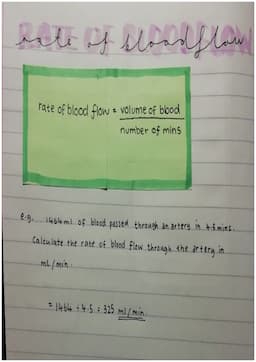 rate of bloodflow
rate of blood flow = volume of blood
number of mins
e.g. 1464ml of blood passed through an artery in 4.5 mins.
Calculate the rate of blood flow through the artery in
mL/min.
= 1464 ÷ 4.5 = 325 ml/min